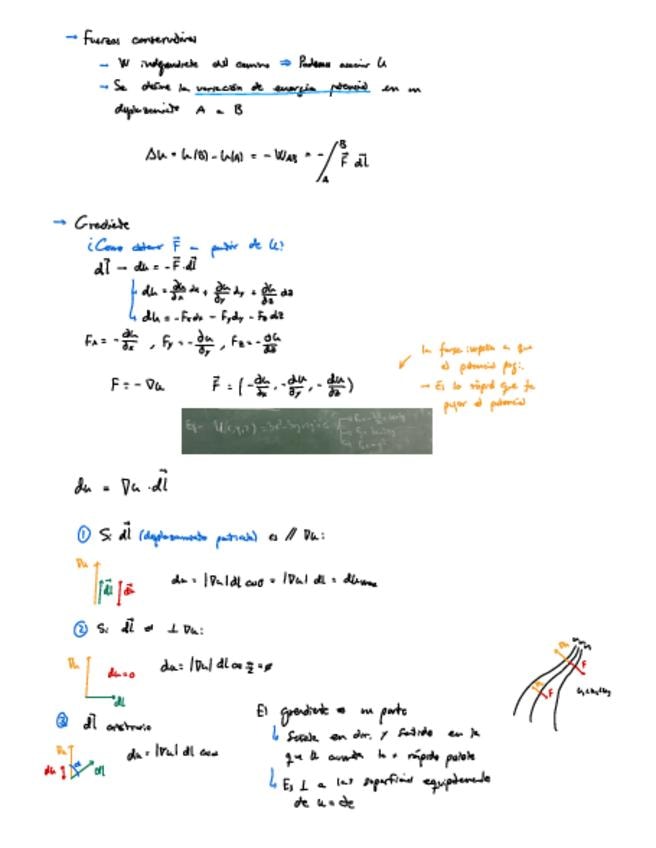 → Fuerzas conservativas
→ W independiente del camino ⇒ Podemos asociar U
→ Se define la variación de energía potencial en un
desplazamiento A a B
Δu = u(B) - u(A) = - W_AB = - ∫_A^B F⃗ dl⃗
→ Gradiente
¿Como obtener F⃗ a partir de U?
dl⃗ → du = - F⃗ · dl⃗
du = ∂u/∂x dx + ∂u/∂y dy + ∂u/∂z dz
du = - Fx dx - Fy dy - Fz dz
Fx = - ∂u/∂x , Fy = - ∂u/∂y , Fz = - ∂u/∂z
la fuerza a que
el potencial
→ Es lo rápido que
el potencial
F = - ∇u F⃗ = (- ∂u/∂x, - ∂u/∂y, - ∂u/∂z)
du = ∇u · dl⃗
① Si dl⃗ (desplazamiento partícula) es // ∇u:
∇u dl⃗ du⃗
du = |∇u| dl cos 0 = |∇u| dl = du max
② Si dl⃗ es ⊥ ∇u:
∇u du = 0 dl
du = |∇u| dl cos π/2 = 0
③ dl⃗ arbitrario
∇u du α dl
du = |∇u| dl cos α
F
F
El gradiente es un
Señala en dir. y sentido en la
que U aumenta lo + rápido posible
Es ⊥ a las superficies equipotenciales
de u = cte